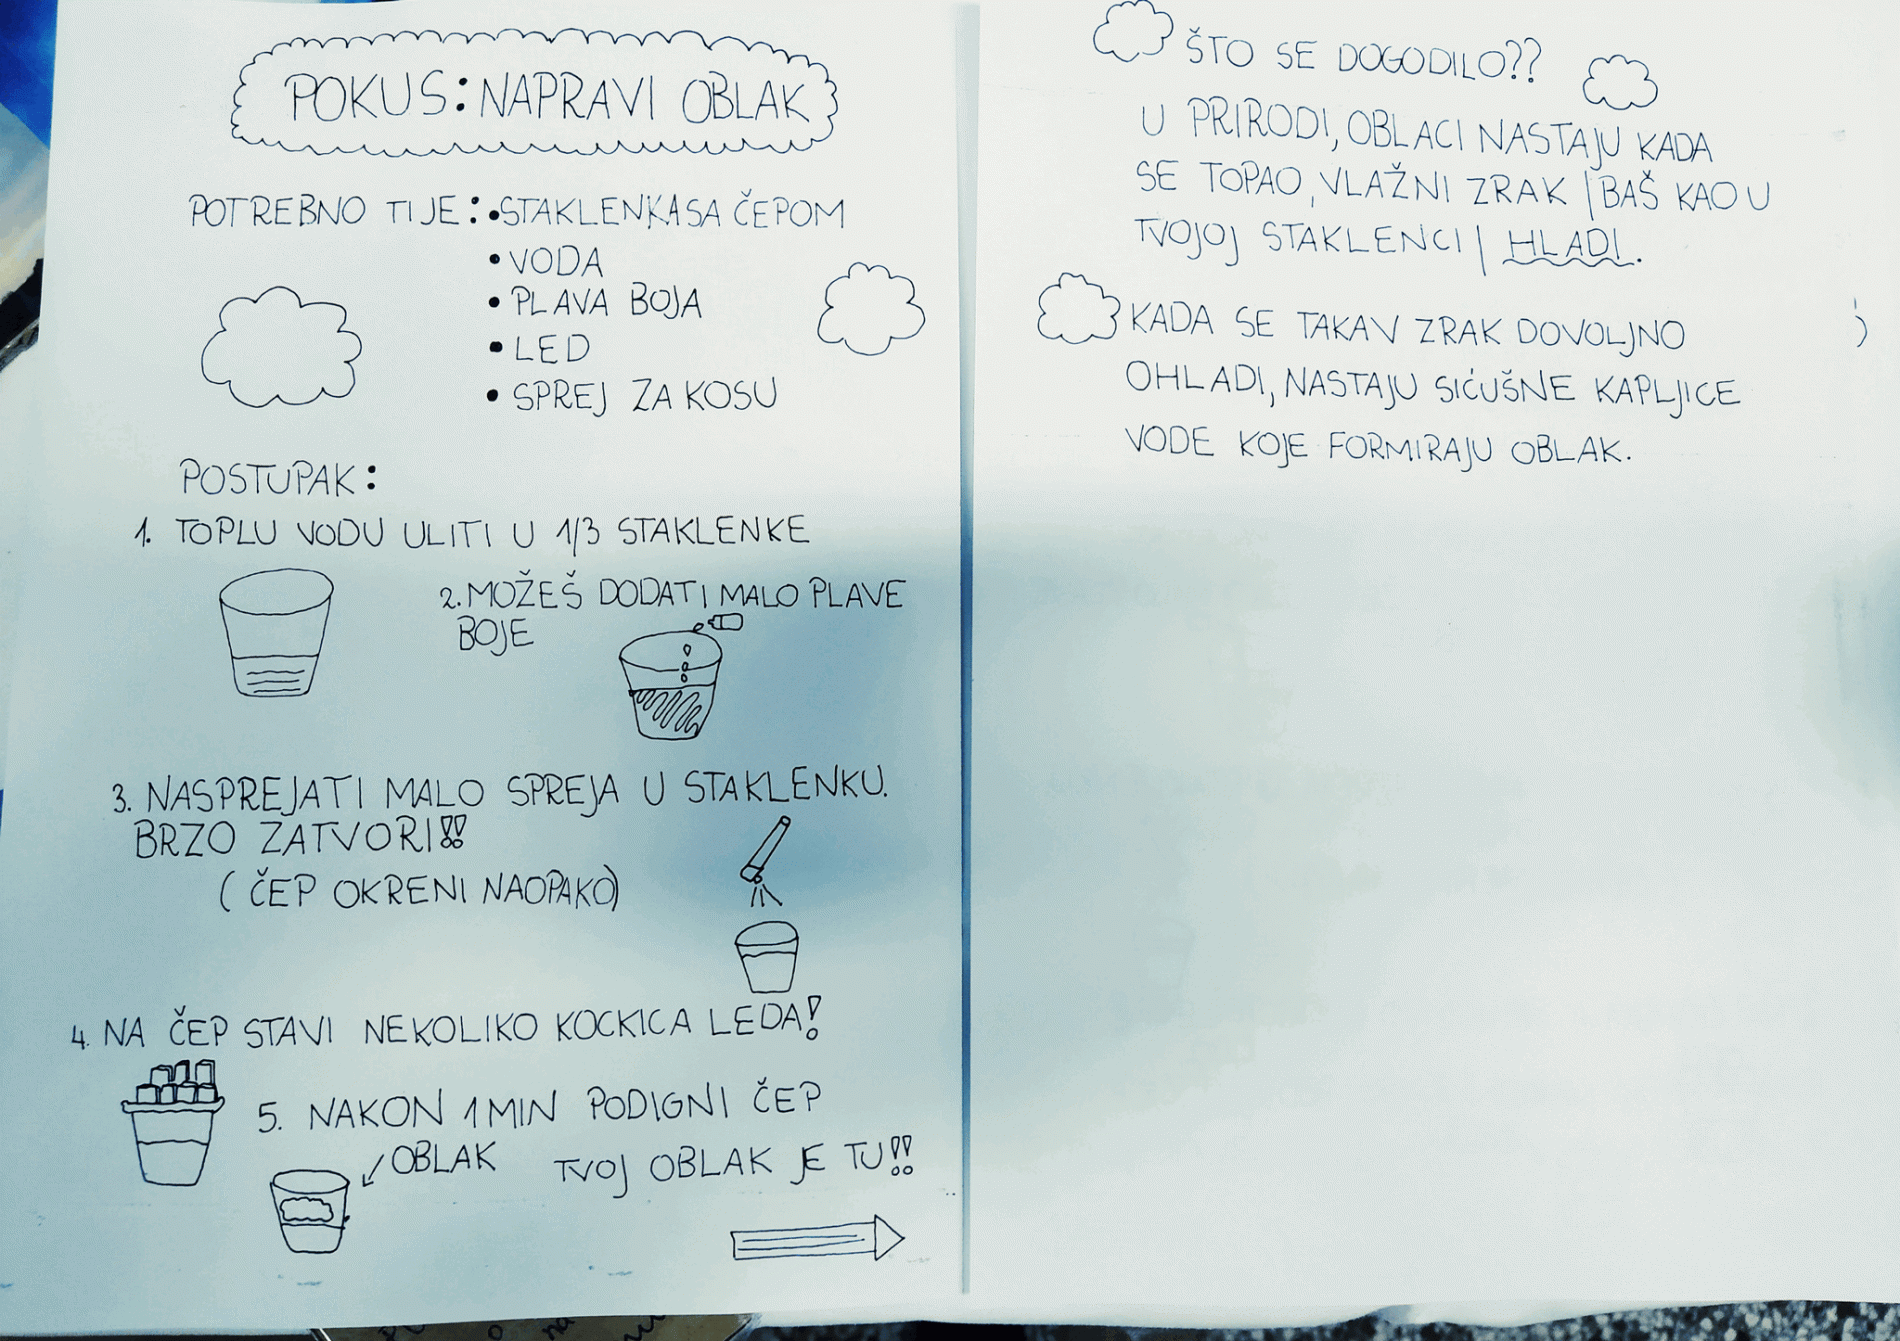 POKUS: NAPRAVI OBLAK
POTREBNO TI JE: • STAKLENKA SA ČEPOM
• VODA
• PLAVA BOJA
• LED
• SPREJ ZA KOSU
POSTUPAK:
1. TOPLU VODU ULITI U 1/3 STAKLENKE
2. MOŽEŠ DODATI MALO PLAVE
BOJE
3. NASPREJATI MALO SPREJA U STAKLENKU.
BRZO ZATVORI!!
( ČEP OKRENI NAOPAKO)
4. NA ČEP STAVI NEKOLIKO KOCKICA LEDA!
5. NAKON 1 MIN PODIGNI ČEP
OBLAK
TVOJ OBLAK JE TU!!
ŠTO SE DOGODILO??
U PRIRODI, OBLACI NASTAJU KADA
SE TOPAO, VLAŽNI ZRAK | BAŠ KAO U
TVOJOJ STAKLENCI | HLADI.
KADA SE TAKAV ZRAK DOVOLJNO
OHLADI, NASTAJU SIĆUŠNE KAPLJICE
VODE KOJE FORMIRAJU OBLAK.